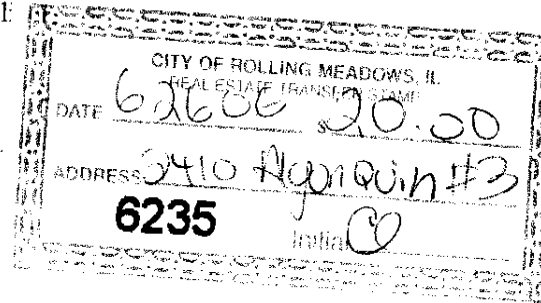 CITY OF ROLLING MEADOWS, IL
REAL ESTATE TRANSFER STAMP
DATE 6.26.06 $20.00
ADDRESS 5410 Algonquin #3
6235 Initial CO